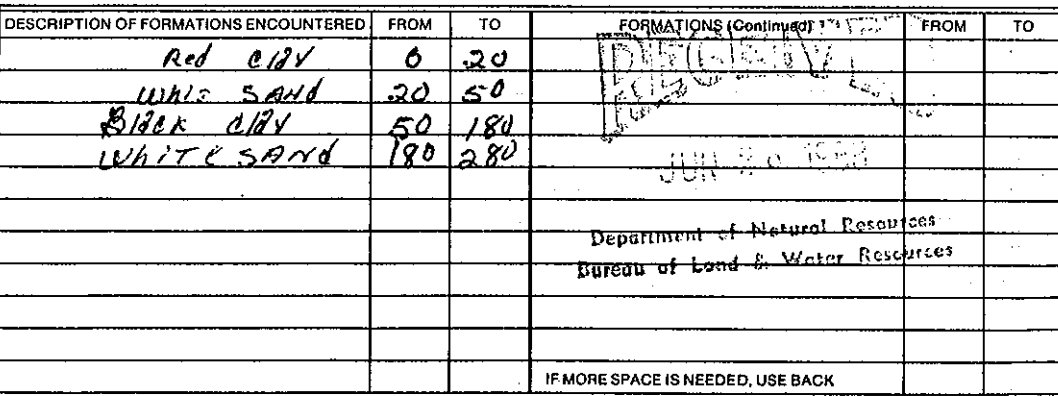 DESCRIPTION OF FORMATIONS ENCOUNTERED FROM TO FORMATIONS (Continued) FROM TO
Red clay 0 20
Whie SAND 20 50
Black clay 50 180
WhiTe SANd 180 280
RECEIV
JUN
Department of Natural Resources
Bureau of Land & Water Resources
IF MORE SPACE IS NEEDED, USE BACK